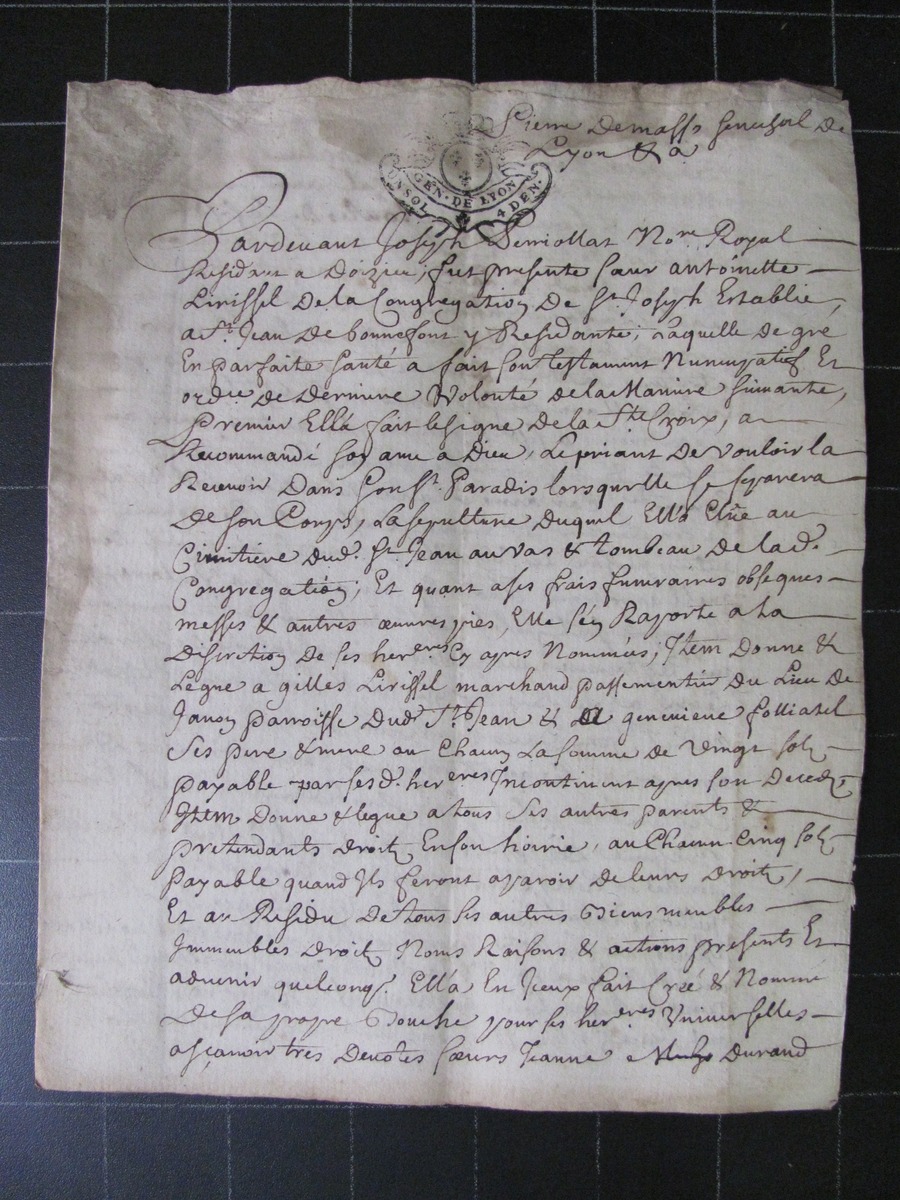 Pierre Demasso seneschal de
Lyon & a
GEN · DE LYON
UN SOL 4 DEN ·
Pardevant Joseph Perriollat No.re Royal
Residant a Doizieu, fut presente sœur antoinette
Lirissel de la Congregation de St. Joseph Establie,
a St. Jean de bonnefont y Residante, Laquelle de gré
En parfaite santé a fait son testament Nuncupatif Et
ord.re de Derniere Volonté de la Maniere suivante,
Premier Ell'a fait le signe de la Ste. Croix, a
Recommandé son ame a Dieu, Le priant de vouloir la
Recevoir Dans son St. Paradis lors qu'elle se separera
de son Corps, La sepulture duquel Ell'a Elüe au
Cimitiere dud. St. Jean au vas & tombeau de lad.
Congregation; Et quant a ses frais funeraires obseques
messes & autres œuvres pies, Elle s'en Raporte a La
discretion de ses her.eres Cy apres Nommées; Item donne &
Legue a gilles Lirissel marchand passementier du Lieu de
Janon parroisse dud. St. Jean & a genevieve folliasel
ses pere & mere au Chacun La somme de vingt solz
payable par sesd. her.eres Incontinent apres son Decedz,
Item donne & legue a tous ses autres parents &
pretendants droitz En son hoirie, au Chacun Cinq solz
payable quand Ils feront aparoir de leurs Droitz,
Et au Residu de tous ses autres Biens meubles
Immeubles Droitz Noms Raisons & actions presents Et
advenir quelconq. Ell'a En Iceux fait Créé & Nommé
de sa propre Bouche pour ses her.eres Universelles
asçavoir tres Devotes sœurs Jeanne Durand